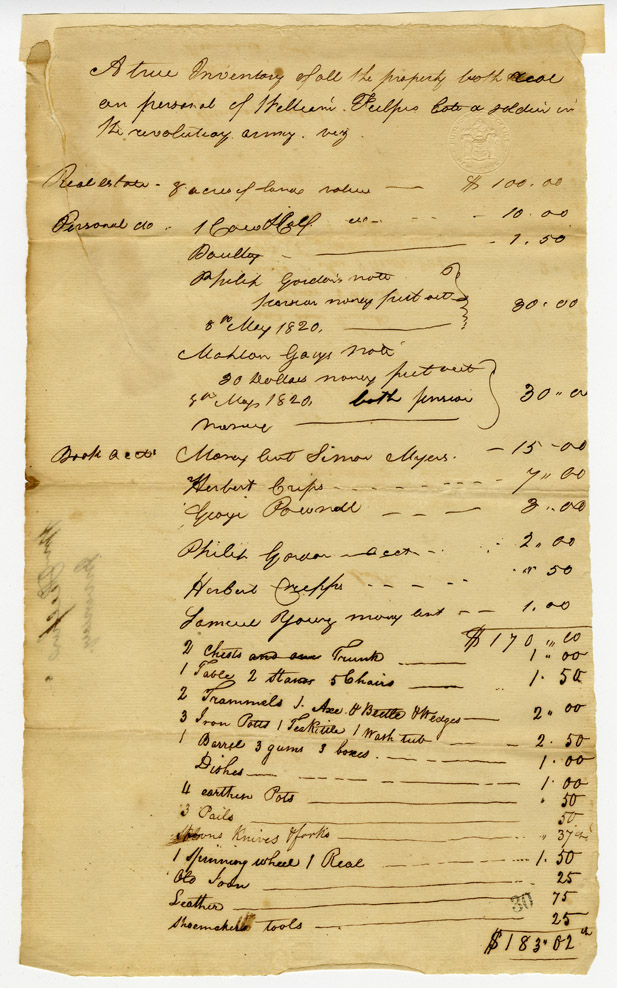 A true Inventory of all the property both real
an personal of William Phelps late a soldier in
the revolutiory army. viz
Real estate - 8 acre of lands value — $ 100.00
Personal do . 1 Cow & Calf do - - - 10.00
Poultry - — - 1.50
Philip Gordon's note
pension money put out
8th May 1820. — 30.00
Mahlon Gays Note
30 Dollars money put out
8th May 1820. both pension
money — 30 " 00
Book acct Money lent Simon Myers. - 15-00
Herbert Crips - - - - - 7 " 00
George Pownall - - - 3 " 00
Philip Gordon acct - - 2 " 00
Herbert Cripps - - - " 50
Samuel Young money lent - - 1.00
$ 170 " 00
2 Chests and one Trunk — 1 " 00
1 Table 2 Stands 5 Chairs — 1.50
2 Trammels 1. Axe & Beetle & Wedges — 2 " 00
3 Iron Potts 1 Teakittle 1 Wash tub — 2.50
1 Barrel 3 gums 3 boxes. — 1.00
Dishes — 1.00
4 earthen Pots — " 50
3 Pails — 50
Knives & forks — " 37
1 Spinning wheel 1 Real — 1.50
Old Iron — 25
Leather — 75
Shoemakers tools — 25
30
$ 183.02